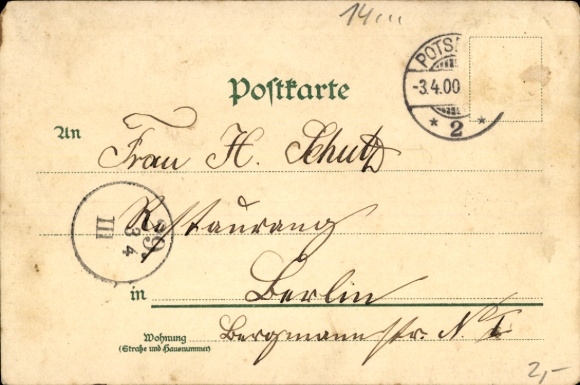 14...
Postkarte
POTS
-3.4.00
* 2 *
An Frau H. Schutz
Restaurang
39.
3 4
III
in Berlin
Wohnung
(Straße und Hausnummer)
Bergmannstr. N I
2,-